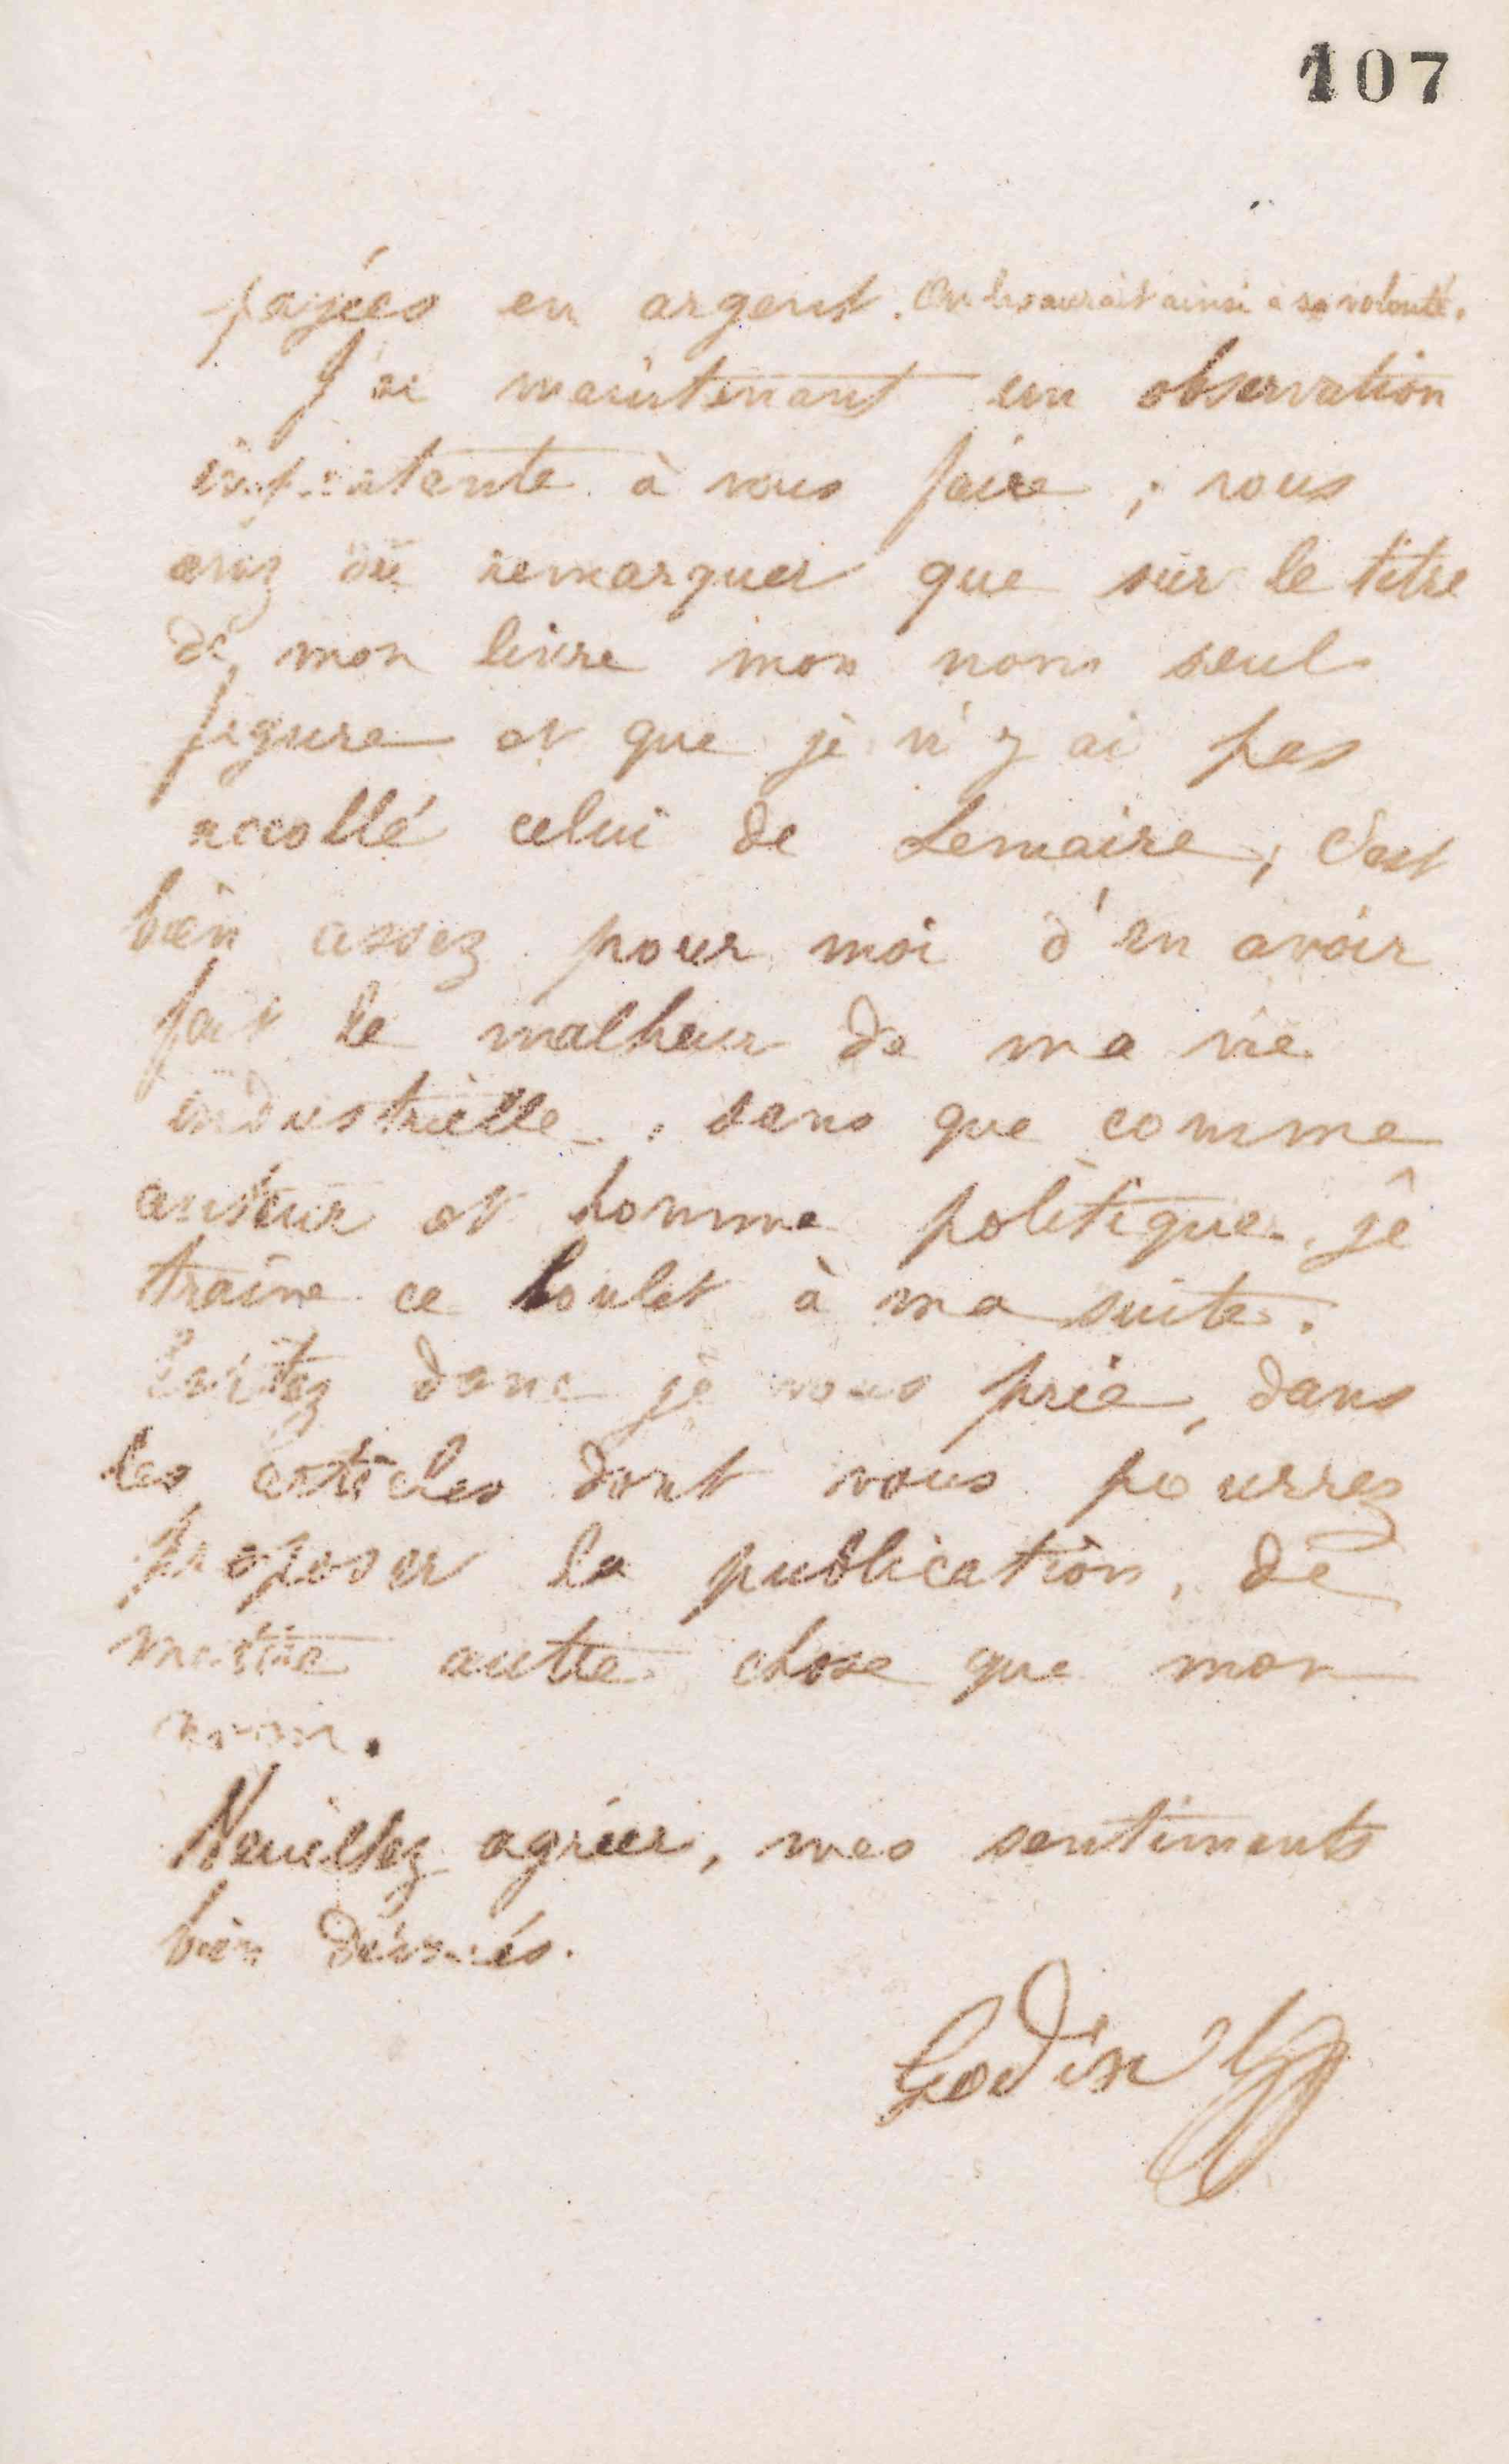 107
payées en argent. On les aurait ainsi à sa volonté.
J'ai maintenant un observation
importante à vous faire ; vous
avez dû remarquer que sur le titre
de mon livre mon nom seul
figure et que je n'y ai pas
accollé celui de Lemaire, c'est
bien assez pour moi d'en avoir
fait le malheur de ma vie
industrielle, sans que comme
auteur et homme politique, je
traîne ce boulet à ma suite.
Evitez donc je vous prie, dans
les articles dont vous pourrez
proposer la publication, de
mettre autre chose que mon
nom.
Veuillez agréer, mes sentiments
bien dévoués.
Godin